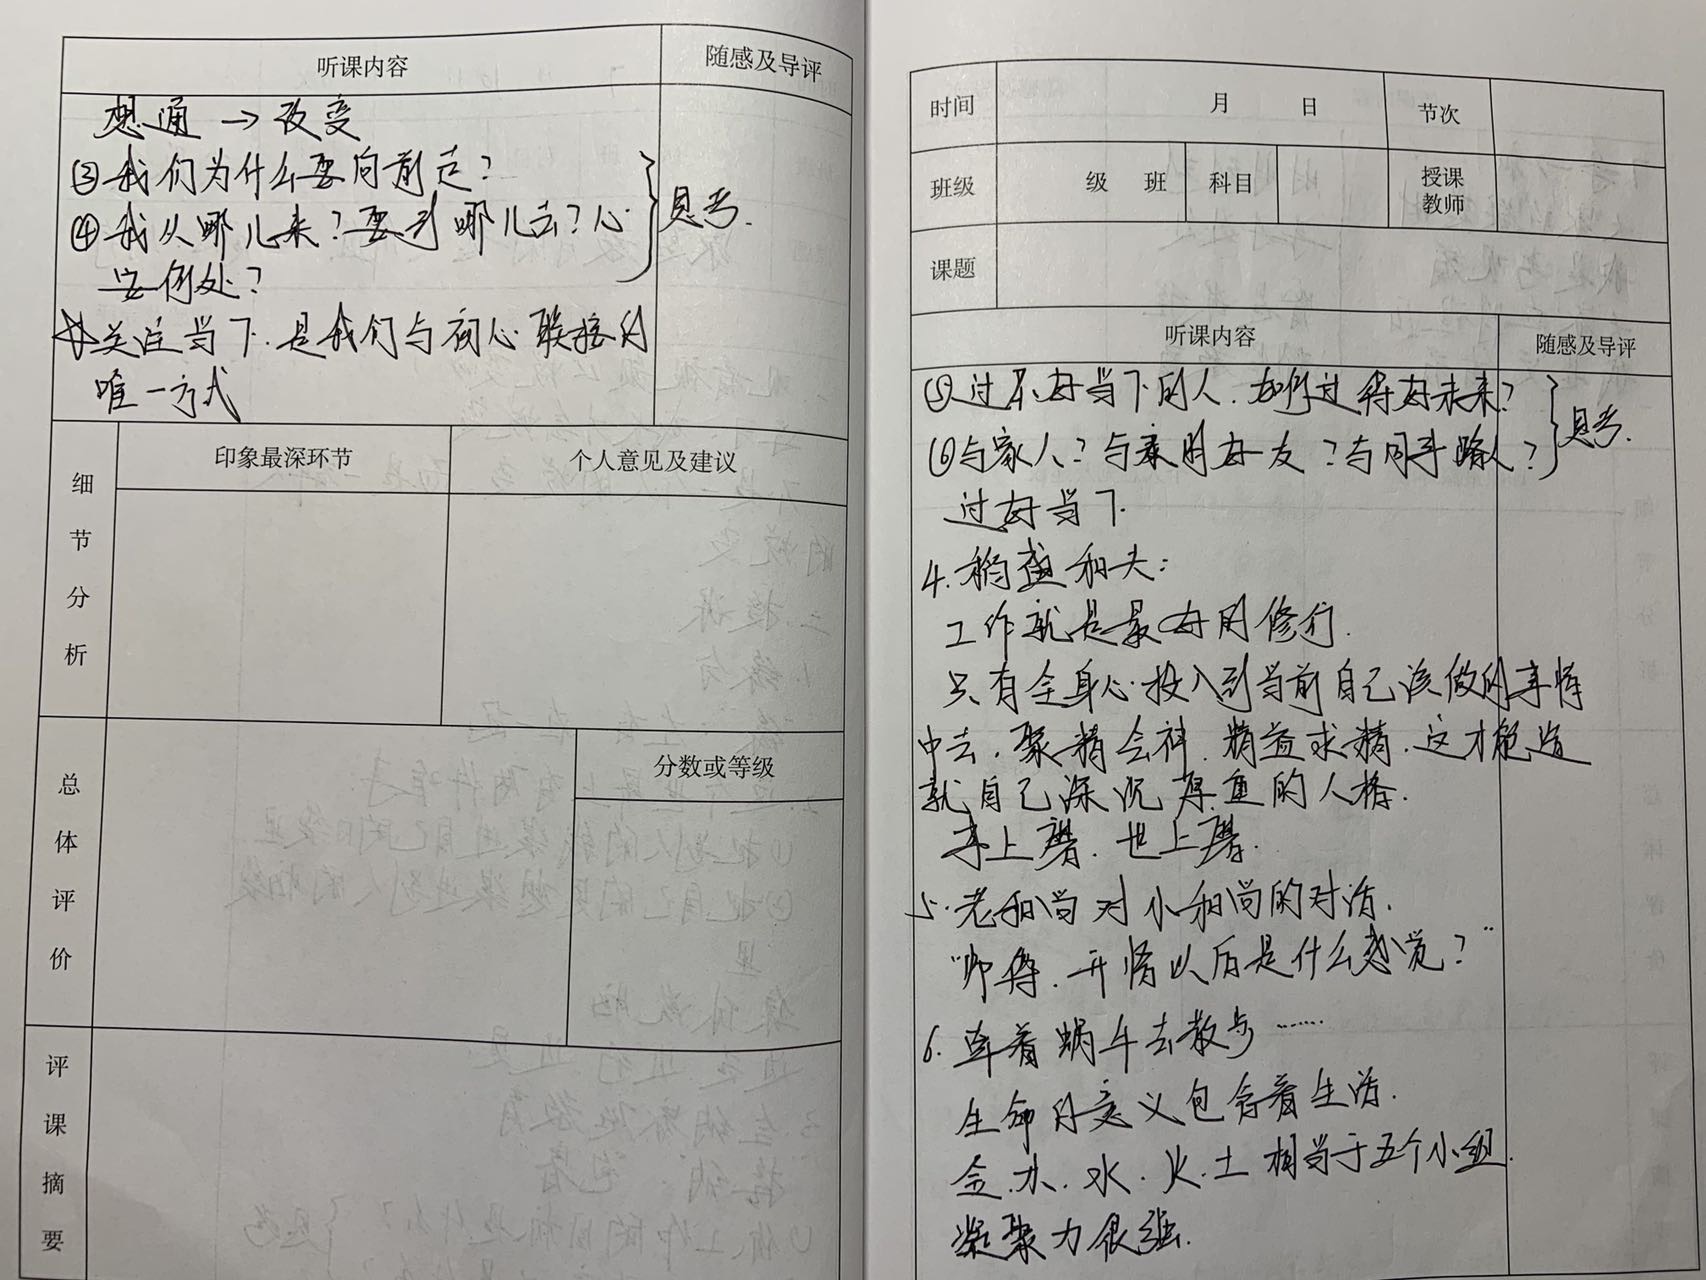 听课内容
随感及导评
想通→改变
③我们为什么要向前走?
④我从哪儿来?要到哪儿去?心
安何处?
思考.
☆关注当下.是我们与初心联接的
唯一方式
细节分析
印象最深环节
个人意见及建议
总体评价
分数或等级
评课摘要
时间
月 日
节次
班级
级 班
科目
授课教师
课题
听课内容
随感及导评
⑤过不好当下的人.如何过得好未来?
⑥与家人?与亲朋好友?与同事路人?
思考.
过好当下.
4.稻盛和夫:
工作就是最好的修行.
只有全身心投入到当前自己该做的事情
中去.聚精会神.精益求精.这才能造
就自己深沉厚重的人格.
事上磨.也上磨.
5.老和尚对小和尚的对话.
"师傅.开悟以后是什么感觉?"
6.牵着蜗牛去散步……
生命的意义包含着生活.
金.木.水.火.土相当于五个小组.
凝聚力很强.